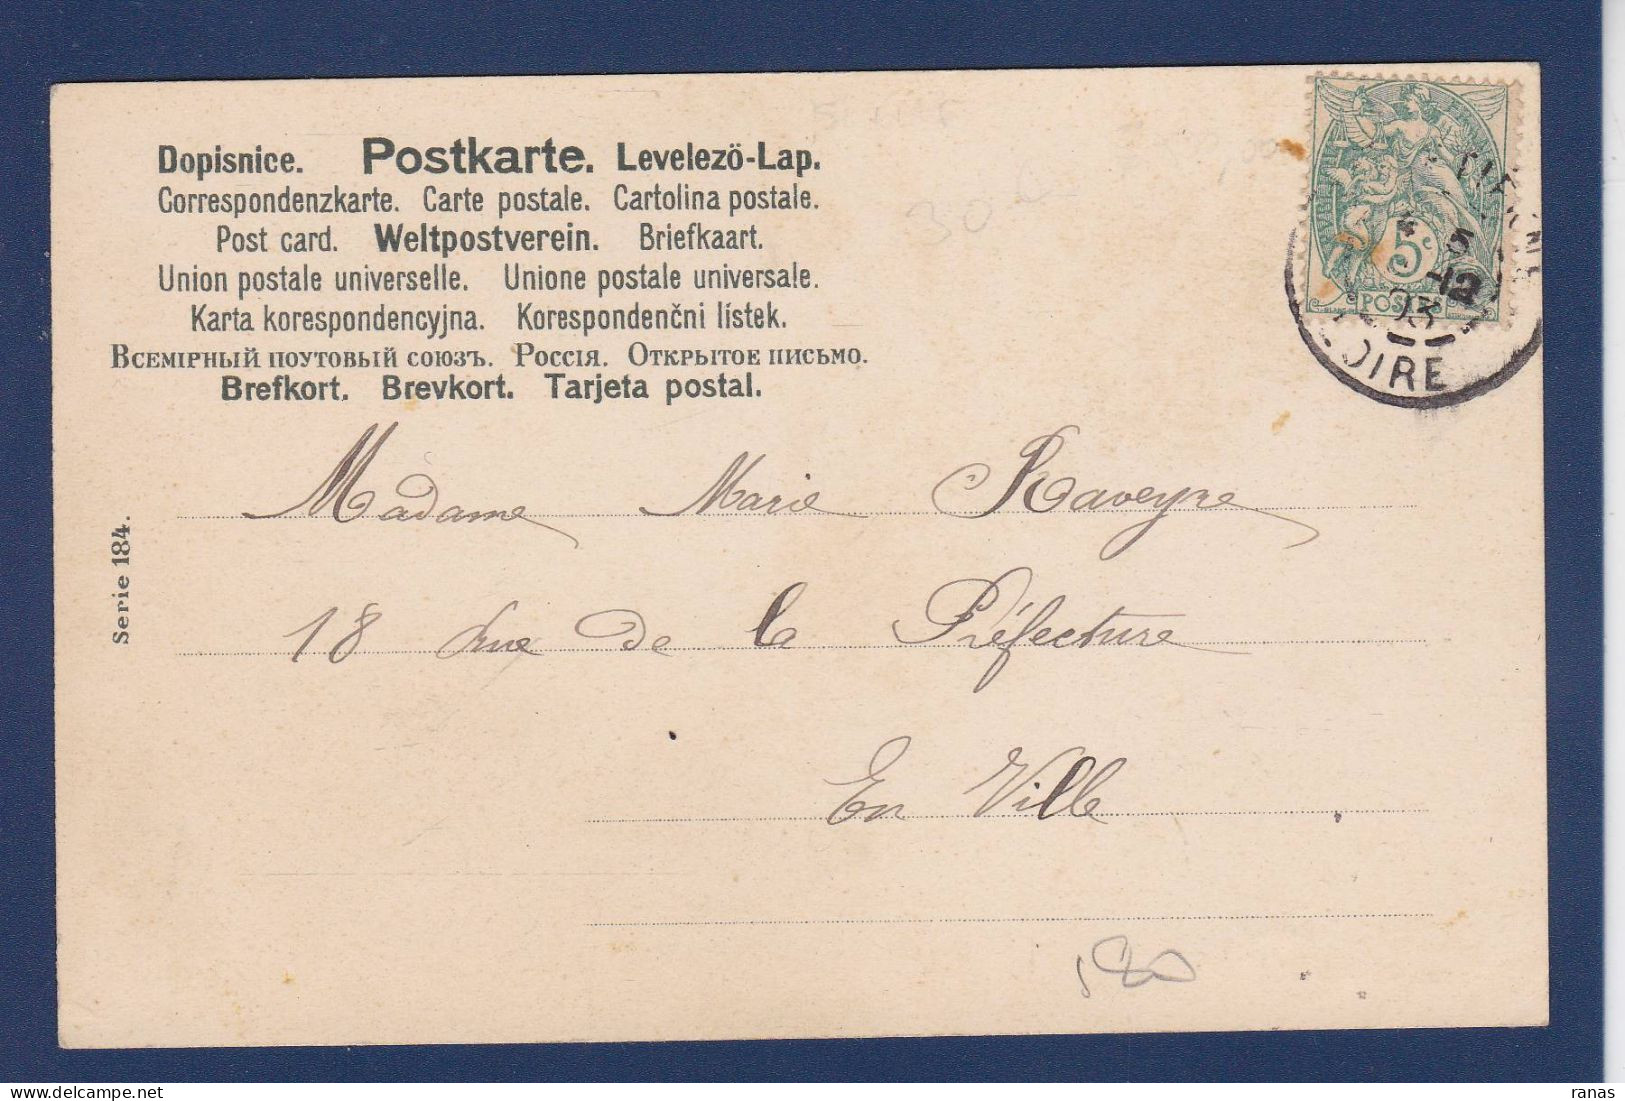 Dopisnice. Postkarte. Levelezö-Lap.
Correspondenzkarte. Carte postale. Cartolina postale.
Post card. Weltpostverein. Briefkaart.
Union postale universelle. Unione postale universale.
Karta korespondencyjna. Korespondenčni lístek.
Всемірный поутовый союзъ. Россія. Открытое письмо.
Brefkort. Brevkort. Tarjeta postal.
5c
POSTES
5
12
03
LOIRE
Serie 184.
Madame Marie Raveyre
18 rue de la Préfecture
En Ville
30
180
ranas